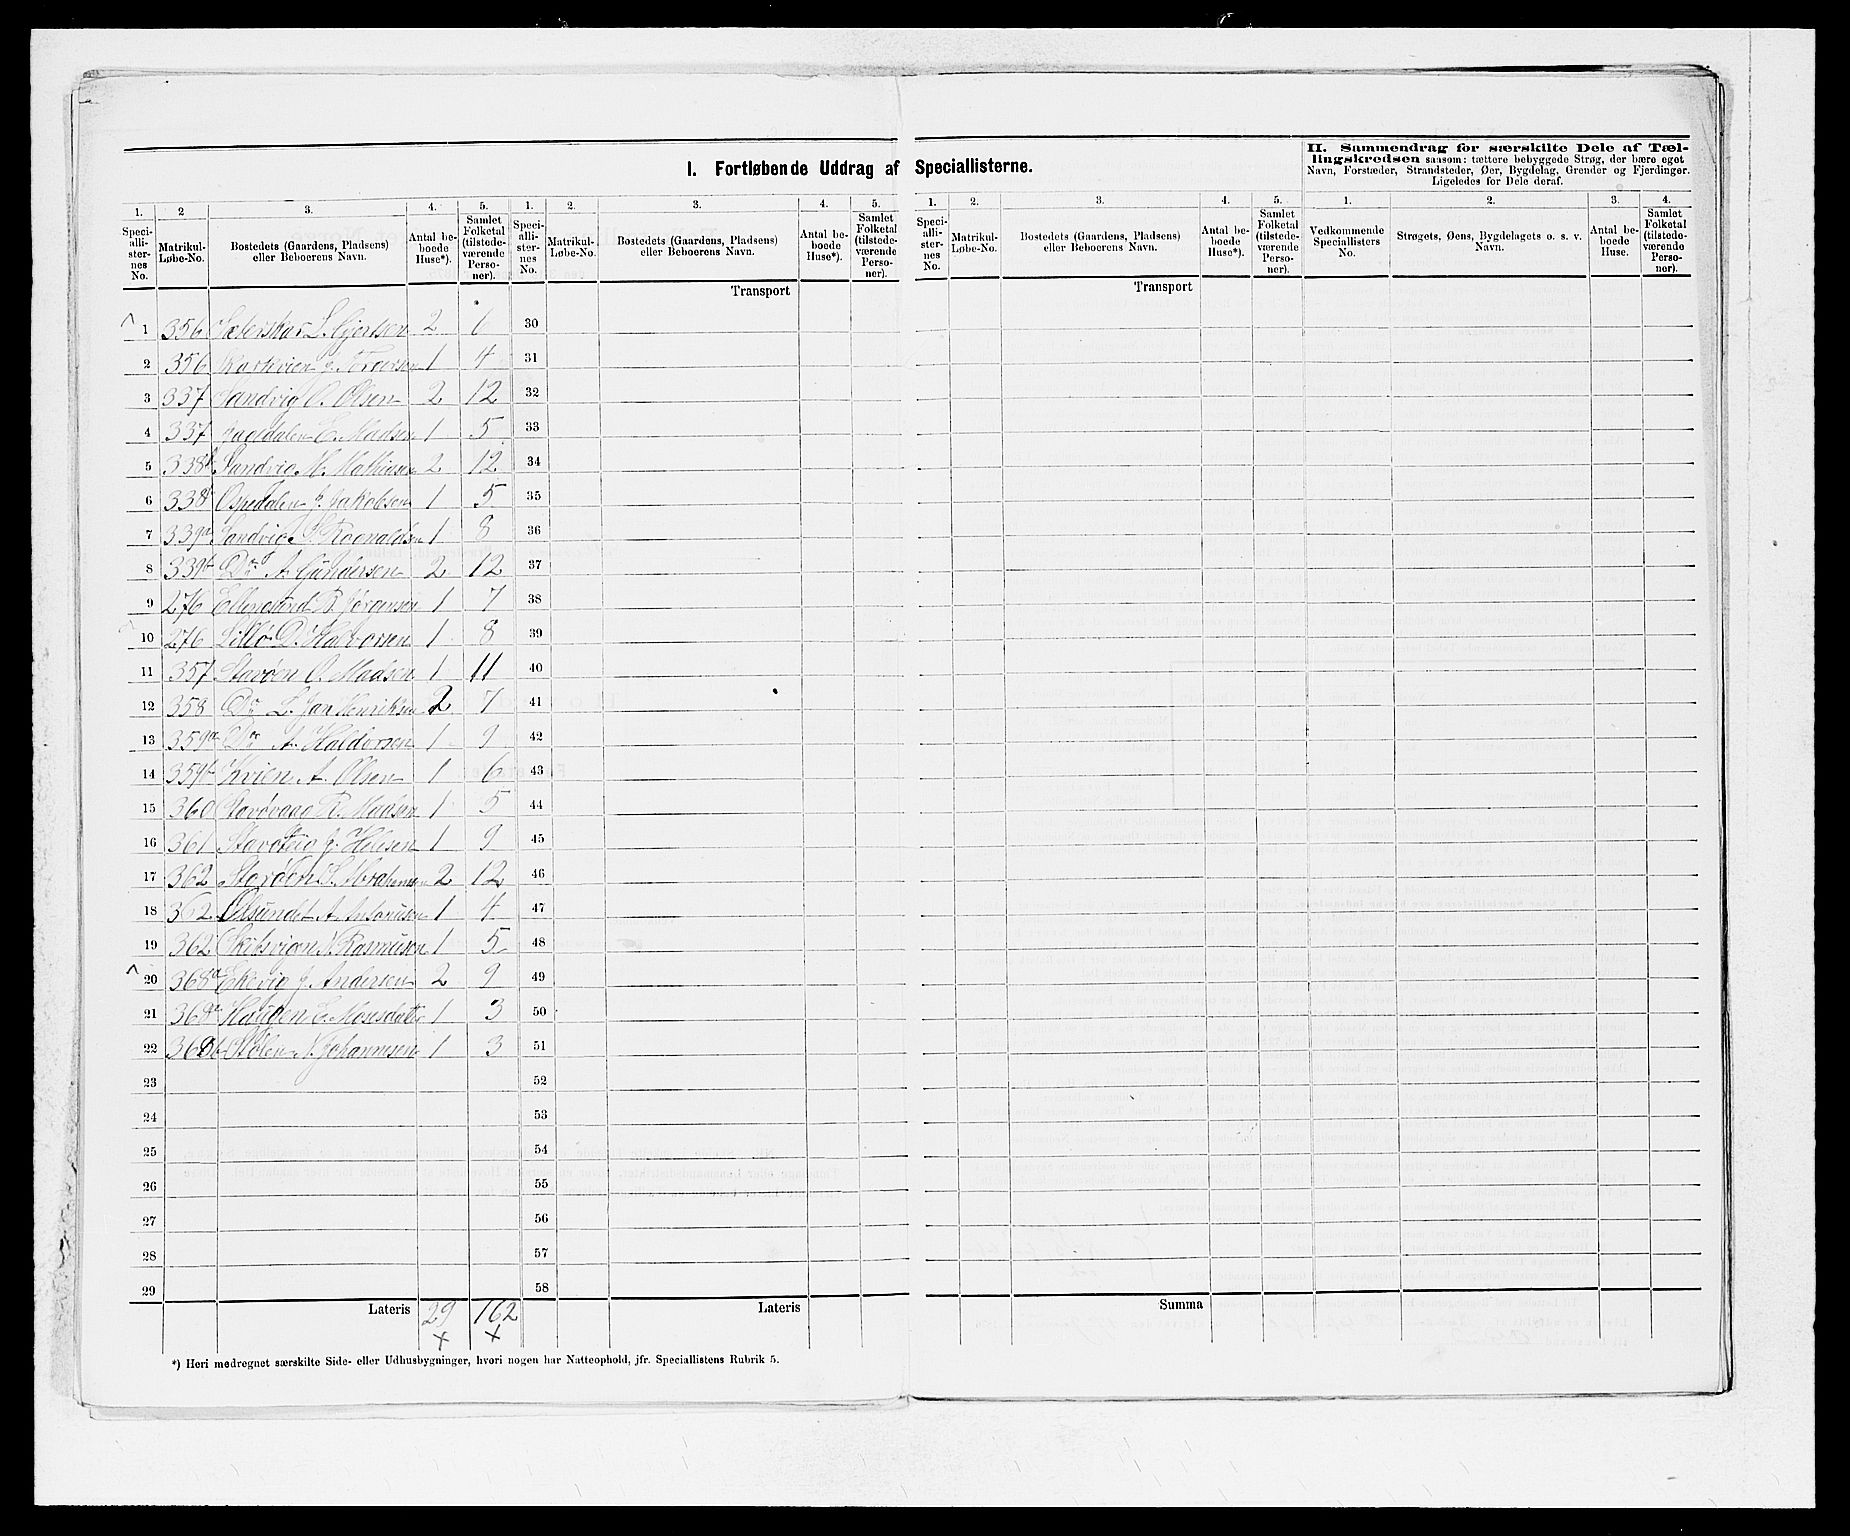 I. Fortløbende Uddrag af Speciallisterne.
II. Sammendrag for særskilte Dele af Tæl-
lingskredsen saasom: tættere bebyggede Strøg, der bære eget
Navn, Forstæder, Strandsteder, Øer, Bygdelag, Grender og Fjerdinger.
Ligeledes for Dele deraf.
1. 2 3. 4. 5. 1. 2. 3. 4. 5. 1. 2. 3. 4. 5. 1. 2. 3. 4.
Speci-
alli-
ster-
nes
No.
Matrikul-
Løbe-No.
Bostedets (Gaardens, Pladsens)
eller Beboerens Navn.
Antal be-
boede
Huse*).
Samlet
Folketal
(tilstede-
værende
Perso-
ner).
Speci-
alli-
ster-
nes
No.
Matrikul-
Løbe-No.
Bostedets (Gaardens, Pladsens)
eller Beboerens Navn.
Antal be-
boede
Huse*).
Samlet
Folketal
(tilstede-
værende
Perso-
ner).
Speci-
alli-
ster-
nes
No.
Matrikul-
Løbe-No.
Bostedets (Gaardens, Pladsens)
eller Beboerens Navn.
Antal be-
boede
Huse*).
Samlet
Folketal
(tilstede-
værende
Perso-
ner).
Vedkommende
Speciallisters
No.
Strøgets, Øens, Bygdelagets o. s. v.
Navn.
Antal be-
boede
Huse.
Samlet
Folketal
(tilstede-
værende
Perso-
ner).
Transport Transport
1 356 L. Gjertsen 2 6 30
2 356 1 4 31
3 337 Sandvig O. Olsen 2 12 32
4 337 E. Madsen 1 5 33
5 338 Sandvig M. Mathiasen 2 12 34
6 338 Ospedalen J. Jakobsen 1 5 35
7 339a Sandvig Ragnaldsen 1 8 36
8 339b Do A. Gundersen 2 12 37
9 276 Ellingsund R. Jørgensen 1 7 38
10 276 Lillø D. Halvorsen 1 8 39
11 357 Storøen O. Madsen 1 11 40
12 358 Do L. Jan Henriksen 2 7 41
13 359a Do A. Haldorsen 1 9 42
14 359b Kvien A. Olsen 1 6 43
15 360 Storøvaag R. Madsen 1 5 44
16 361 Storøteig J. 1 9 45
17 362 Storøen S. Abrahamsen 2 12 46
18 362 Olsundet A. Antonisen 1 4 47
19 362 N. Rasmusen 1 5 48
20 368a Ekevig J. Andersen 2 9 49
21 368a Haugen E. Monsdatter 1 3 50
22 368b Stølen N. Johannesen 1 3 51
23 52
24 53
25 54
26 55
27 56
28 57
29 58
Lateris 29 162 Lateris Summa
*) Heri medregnet særskilte Side- eller Udhusbygninger, hvori nogen har Natteophold, jfr. Speciallistens Rubrik 5.